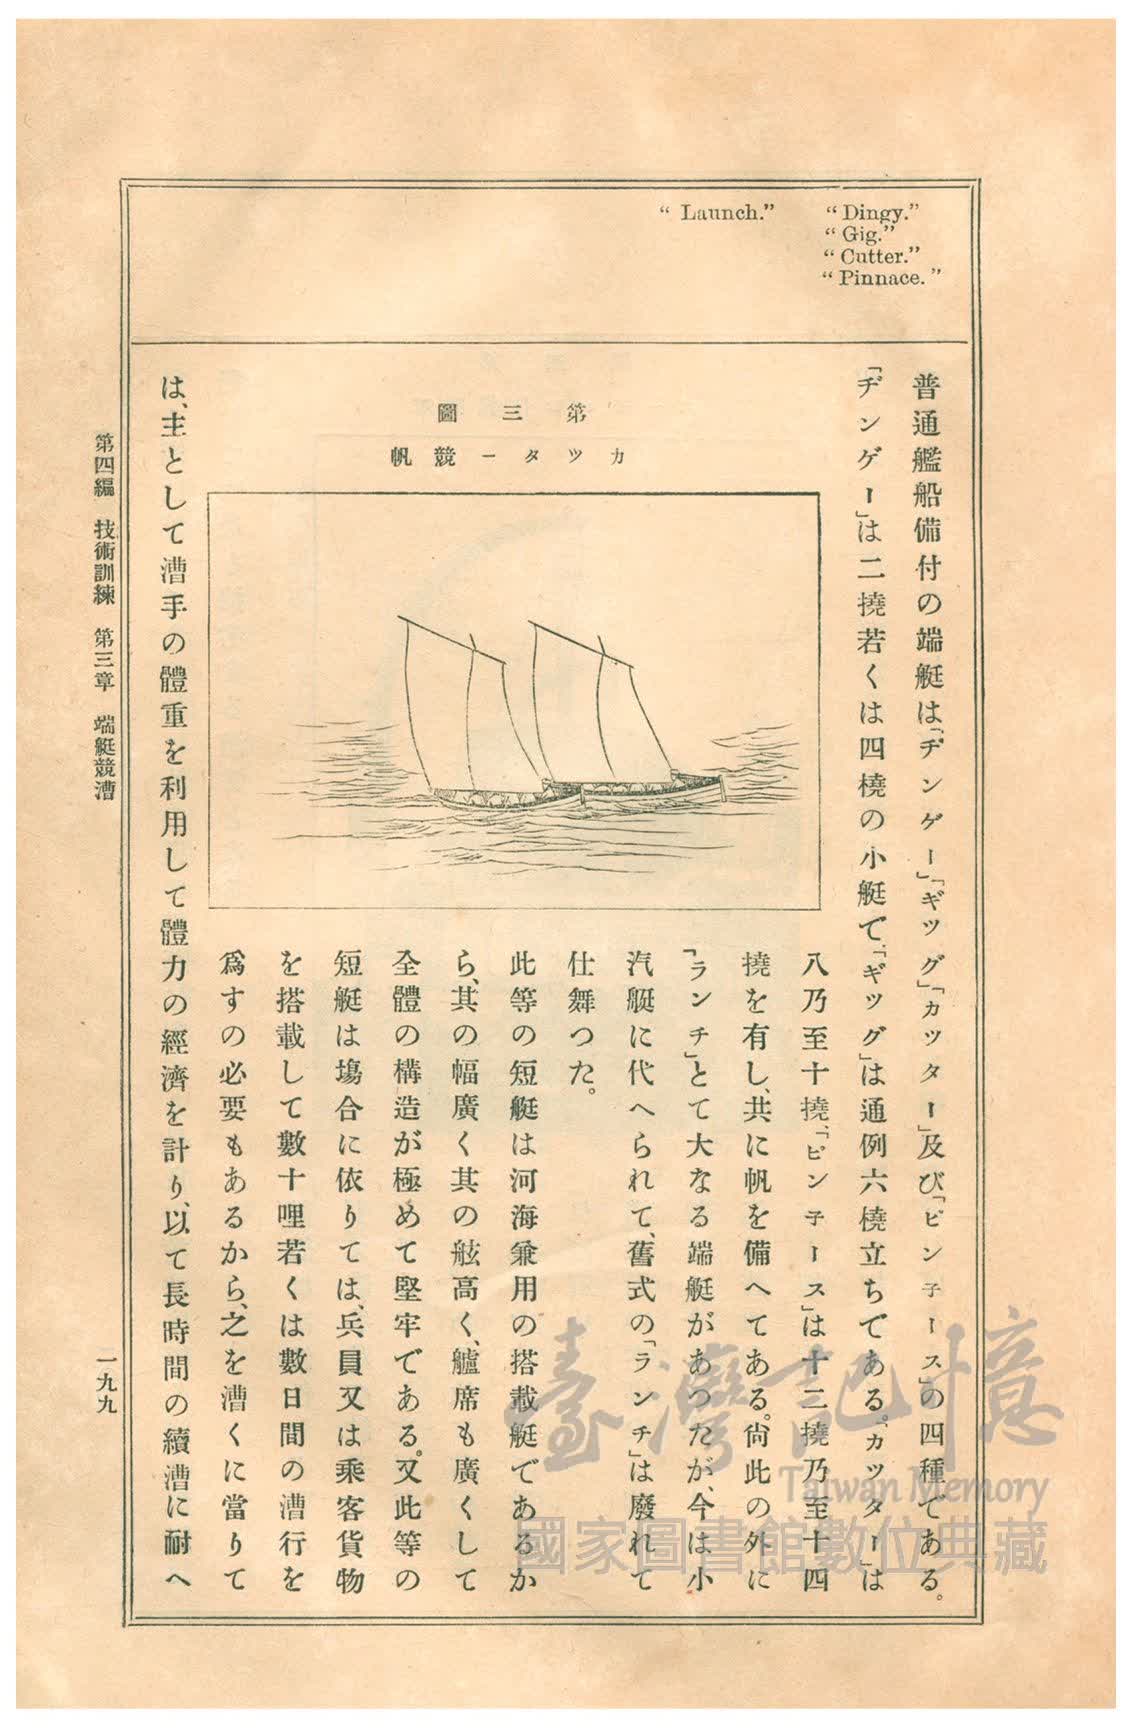 "Dingy."
"Gig."
"Cutter."
"Pinnace."
"Launch."
普通艦船備付の端艇は、「ヂンゲー」「ギツグ」「カツター」及び「ピン子ース」の四種である。
「ヂンゲー」は二撓若くは四橈の小艇で、「ギツグ」は通例六橈立ちである。「カツター」は
八乃至十撓、「ピン子ース」は十二撓乃至十四
撓を有し、共に帆を備へてある。尙此の外に
「ランチ」とて大なる端艇があつたが、今は小
汽艇に代へられて、舊式の「ランチ」は廢れて
仕舞つた。
此等の短艇は河海兼用の搭載艇であるか
ら、其の幅廣く其の舷高く、艫席も廣くして
全體の構造が極めて堅牢である。又此等の
短艇は塲合に依りては、兵員又は乘客貨物
を搭載して數十哩若くは數日間の漕行を
爲すの必要もあるから、之を漕くに當りて
は、主として漕手の體重を利用して體力の經濟を計り、以て長時間の續漕に耐へ
第三圖
カツター競帆
第四編 技術訓練 第三章 端艇競漕
一九九
臺灣記憶
Taiwan Memory
國家圖書館數位典藏